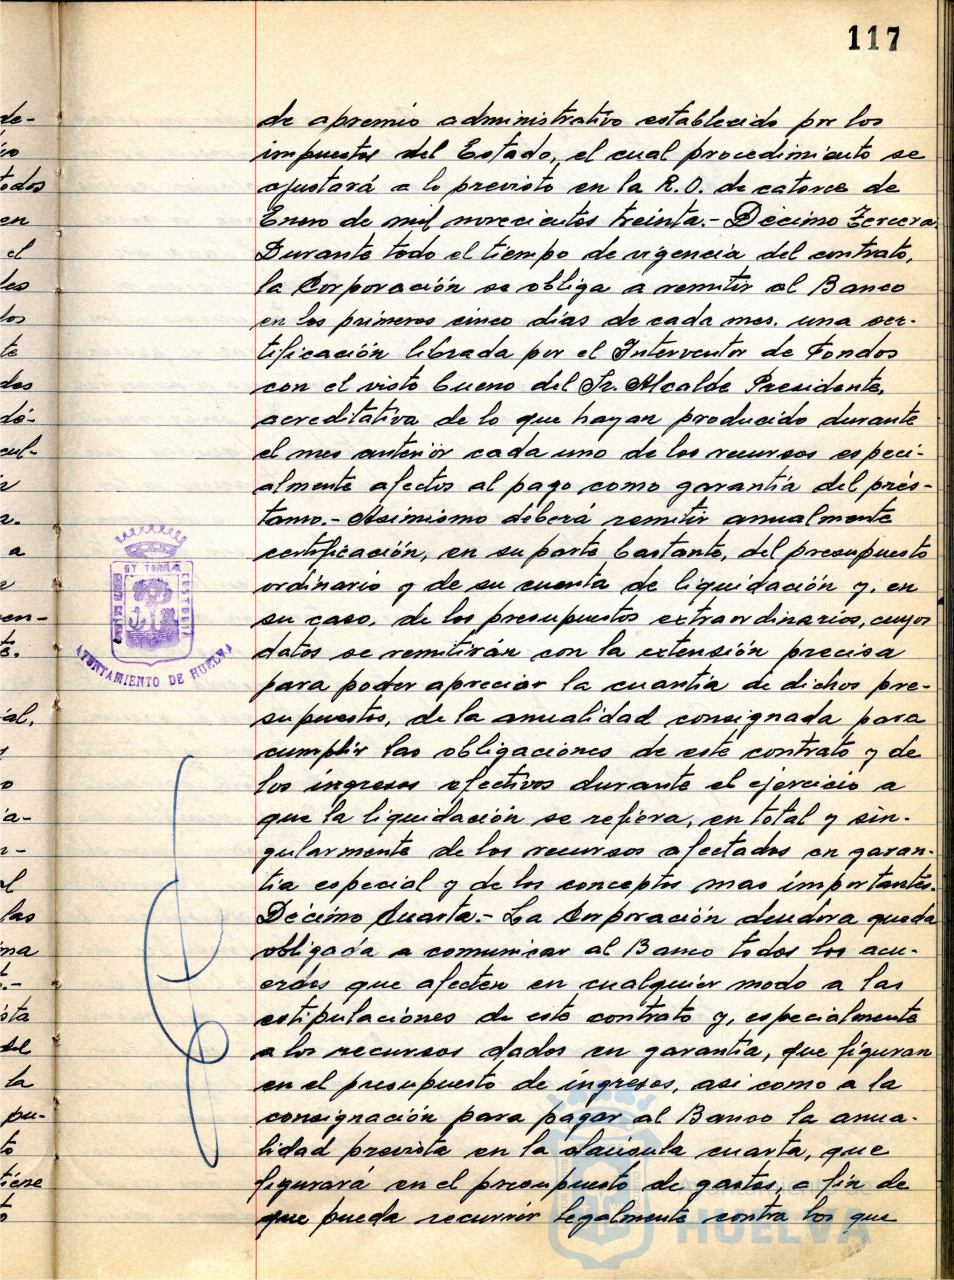 117
de apremio administrativo establecido por los
impuestos del Estado, el cual procedimiento se
ajustará a lo previsto en la R.O. de catorce de
Enero de mil novecientos treinta.- Décimo Tercera.
Durante todo el tiempo de vigencia del contrato,
la Corporación se obliga a remitir al Banco
en los primeros cinco días de cada mes, una cer-
tificación librada por el Interventor de Fondos
con el visto bueno del Sr. Alcalde Presidente,
acreditativa de lo que hayan producido durante
el mes anterior cada uno de los recursos especi-
almente afectos al pago como garantía del prés-
tamo.- Asimismo deberá remitir anualmente
certificación, en su parte bastante, del presupuesto
ordinario y de su cuenta de liquidación y, en
su caso, de los presupuestos extraordinarios, cuyos
datos se remitirán con la extensión precisa
para poder apreciar la cuantía de dichos pre-
supuestos, de la anualidad consignada para
cumplir las obligaciones de este contrato y de
los ingresos efectivos durante el ejercicio a
que la liquidación se refiera, en total y sin-
gularmente de los recursos afectados en garan-
tia especial y de los conceptos mas importantes.
Décimo Cuarta.- La Corporación deudora queda
obligada a comunicar al Banco todos los acu-
erdos que afecten en cualquier modo a las
estipulaciones de este contrato y, especialmente
a los recursos dados en garantía, que figuran
en el presupuesto de ingresos, asi como a la
consignación para pagar al Banco la anua-
lidad prevista en la clausula cuarta, que
figurará en el presupuesto de gastos, a fin de
que pueda recurrir legalmente contra los que
AYUNTAMIENTO DE HUELVA
HUELVA